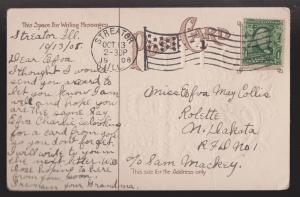 This Space For Writing Messages
CARD
Streator Ill.
10/13/08.
Dear Efva
I thought I would
send you a card to
let you know I am
well and hope you
are the same Say
Efva Charlie is looking
for a card from you
so you do not forget
I will write to you in
the next letter. Will
close hoping to hear
from you soon.
From your Grandma.
STREATOR
OCT 13
2-30P
1908
ILL.
Miss Efva May Collis
Rolette
N. Dakota
R F D No 1
To Sam Mackey.
This side for the Address only